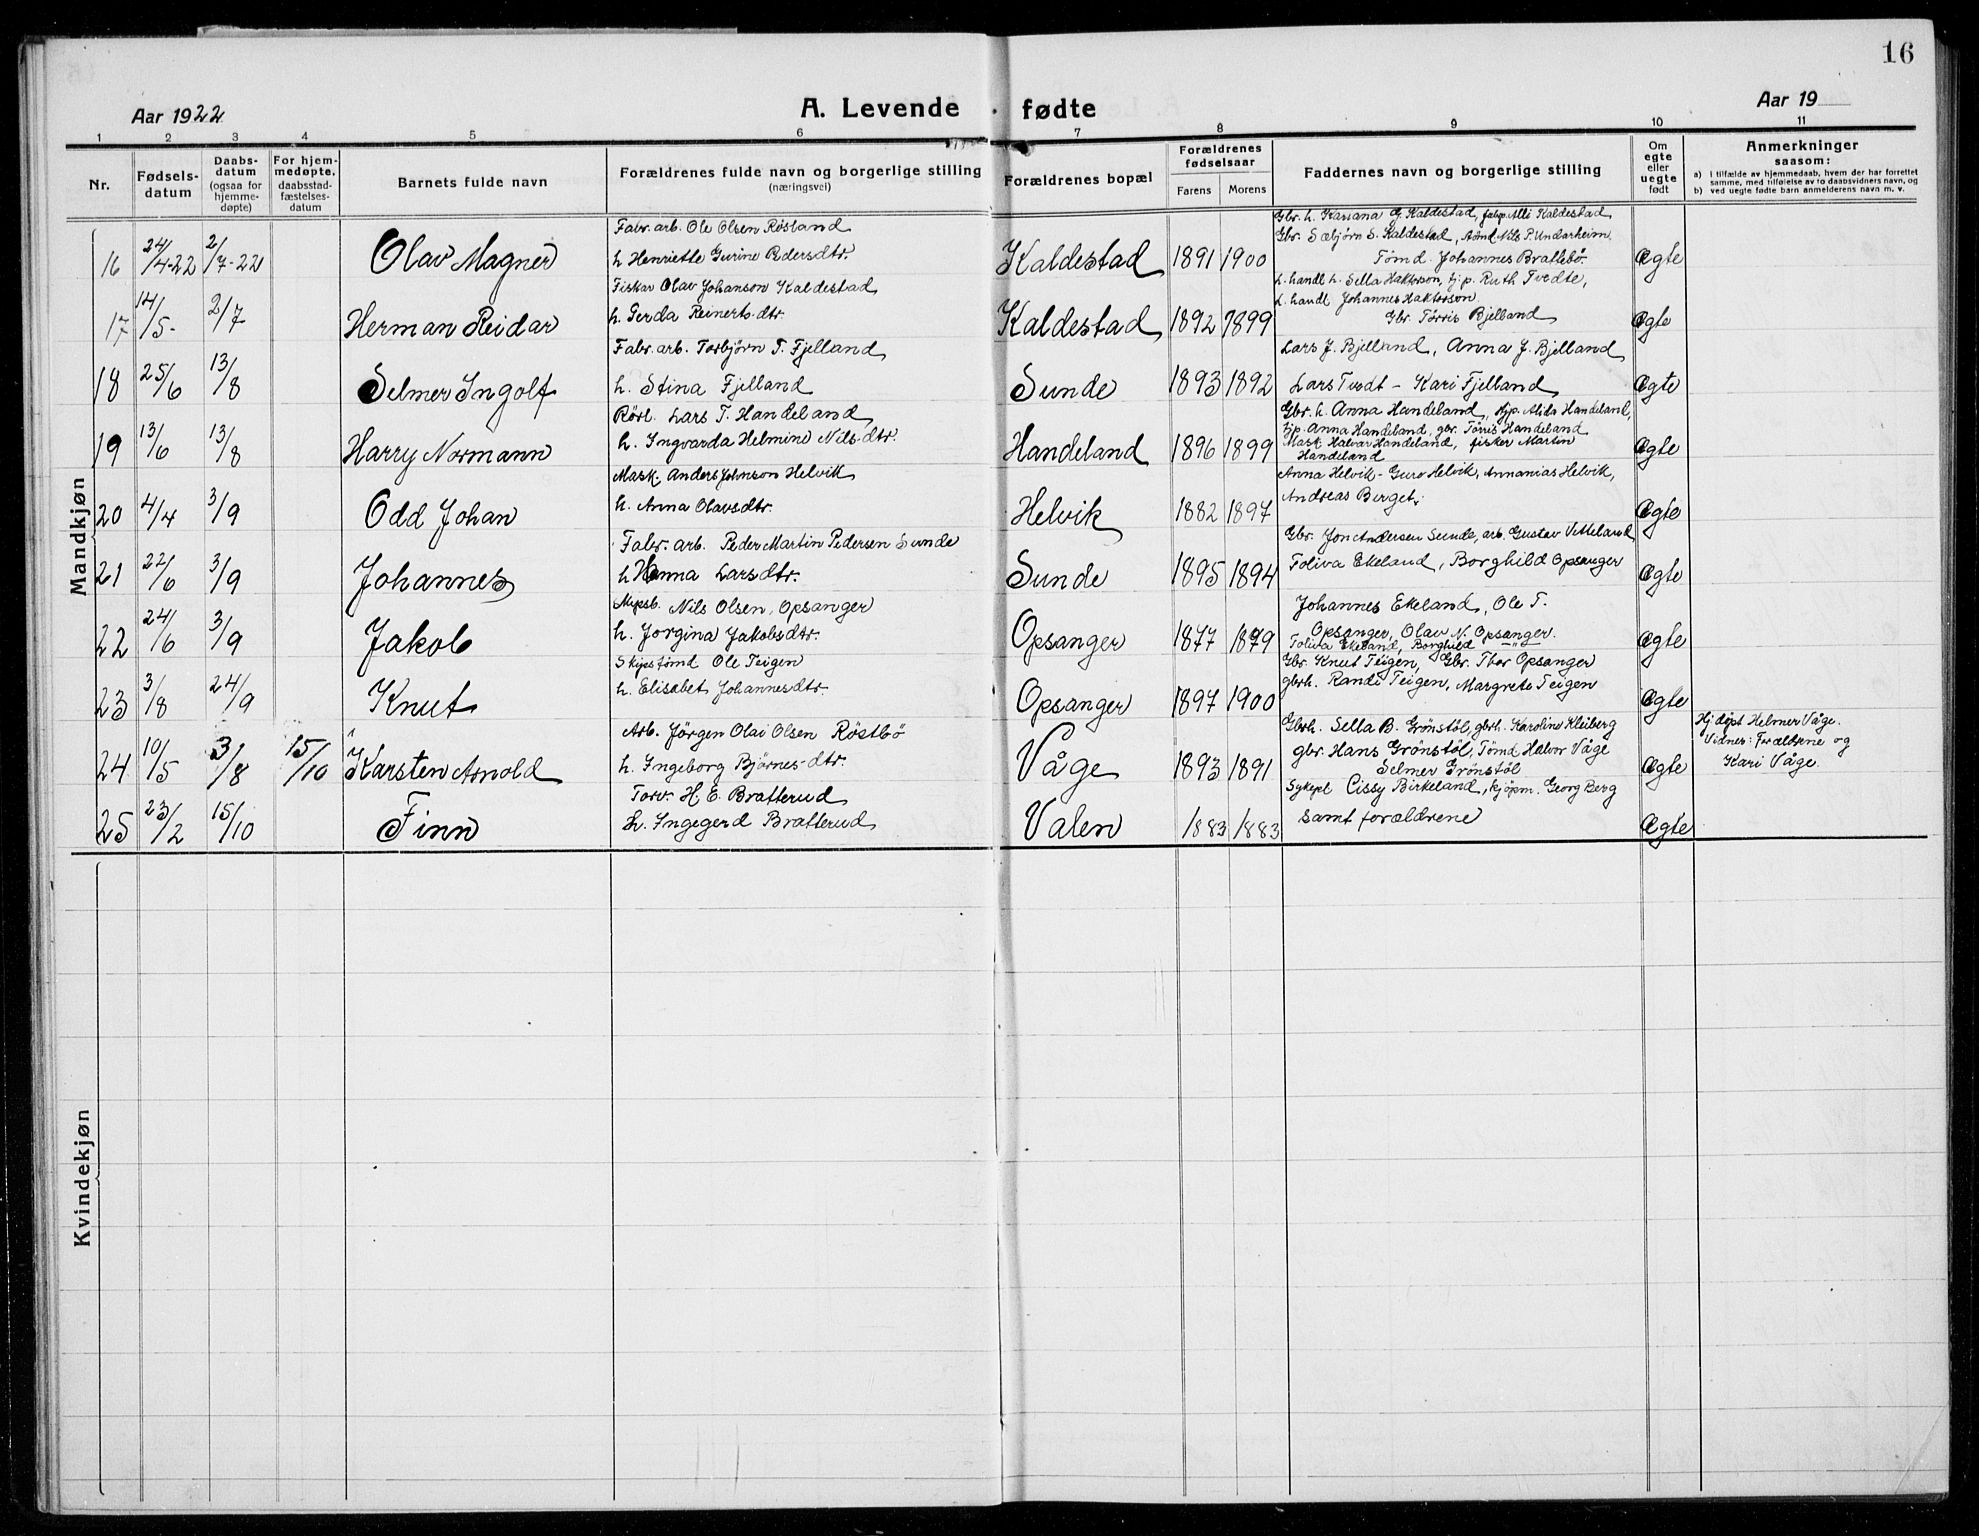 16
Aar 1922
A. Levende fødte
Aar 19
1 2 3 4 5 6 7 8 9 10 11
Nr.
Fødsels-
datum
Daabs-
datum
(ogsaa for
hjemme-
døpte)
For hjem-
medøpte,
daabsstad-
fæstelses-
datum
Barnets fulde navn
Forældrenes fulde navn og borgerlige stilling
(næringsvei)
Forældrenes bopæl
Forældrenes
fødselsaar
Farens Morens
Faddernes navn og borgerlige stilling
Om
egte
eller
uegte
født
Anmerkninger
saasom:
a) i tilfælde av hjemmedaab, hvem der har forrettet
samme, med tilføielse av to daabsvidners navn, og
b) ved uegte fødte barn anmelderens navn m. v.
Mandkjøn
16 24/4-22 2/7-22 Olav Magner
Fabr. arb. Ole Olsen Røsland
h. Henriette Gurine Pedersdtr.
Kaldestad 1891 1900
Gbr. h. Kariana G. Kaldestad, Alli Kaldestad
Gbr. Sæbjørn S. Kaldestad, Nils P. Undarheim
Tømd. Johannes Brattebö.
Egte
17 14/5- 2/7 Herman Reidar
Fisker Olav Johanson Kaldestad
h. Gerda Reinerts.dtr.
Kaldestad 1892 1899
L. handl. h. Sella Haktorson, tj. p. Ruth Tvedte,
L. handl. Johannes Haktorson
Gbr. Tørris Bjelland
Egte
18 25/6 13/8 Selmer Ingolf
Fabr. arb. Torbjørn T. Fjelland
h. Stina Fjelland
Sunde 1893 1892
Lars J. Bjelland, Anna J. Bjelland
Lars Tvedt - Kari Fjelland
Egte
19 13/6 13/8 Harry Normann
Rørl. Lars T. Handeland
h. Ingvarda Helmine Nils-dtr.
Handeland 1896 1899
Gbr. h. Anna Handeland, tjp. Alida Handeland,
tjp. Anna Handeland, gbr. Tørris Handeland
Mask. Halvar Handeland, fisker Martin
Handeland
Egte
20 4/4 3/9 Odd Johan
Mask. Anders Johnson Helvik
h. Anna Olavsdtr.
Helvik 1882 1897
Anna Helvik - Guro Helvik, Annanias Helvik,
Andreas Berget.
Egte
21 22/6 3/9 Johannes
Fabr. arb. Peder Martin Pedersen Sunde
h. Hanna Larsdtr.
Sunde 1895 1894
Gbr. Jon Andersen Sunde, arb. Gustav Vetteland
Toliva Ekeland, Borghild Opsanger
Egte
22 24/6 3/9 Jakob
Nils Olsen, Opsanger
h. Jorgina Jakobsdtr.
Opsanger 1877 1879
Johannes Ekeland, Ole T.
Opsanger, Olav N. Opsanger.
Toliva Ekeland, Borghild -"-
Egte
23 3/8 24/9 Knut
Skipstømd Ole Teigen
h. Elisabet Johannesdtr.
Opsanger 1897 1900
Gbr. Knut Teigen, Gbr. Thor Opsanger
gbrh. Randi Teigen, Margrete Teigen
Egte
24 10/5 3/8 15/10 Karsten Arnold
Arb. Jörgen Olai Olsen Röstbö
h. Ingeborg Bjørnes-dtr.
Våge 1893 1891
Gbrh. Sella B. Grönstöl, gbrh. Karoline Kleiberg
gbr. Hans Grönstöl, Tømd Halvor Våge
Selmer Grönstöl
Egte
Hj. døpt Helmer Våge.
Vidner: Forældrene og
Kari Våge.
25 23/2 15/10 Finn
Torv. H. E. Bratterud
h. Ingegerd Bratterud
Valen 1883 1883
Sykepl. Cissy Birkeland, kjøpm. Georg Berg
samt forældrene
Egte
Kvindekjøn